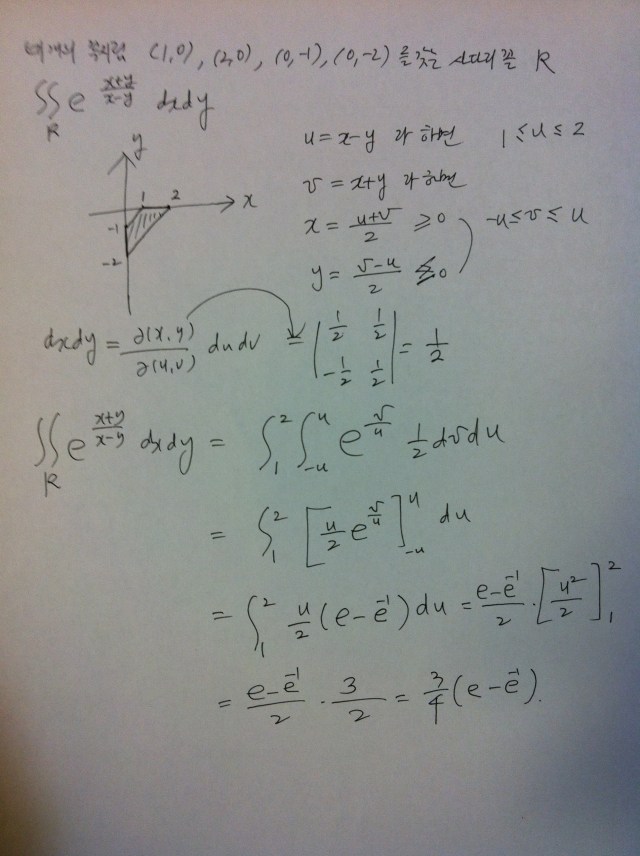 네 개의 꼭지점 (1,0), (2,0), (0,-1), (0,-2) 를 갖는 사다리꼴 R
∬_R e^{\frac{x+y}{x-y}} dxdy
u = x-y 라 하면 1 ≤ u ≤ 2
v = x+y 라 하면
x = \frac{u+v}{2} ≥ 0
-u ≤ v ≤ u
y = \frac{v-u}{2} ≤ 0
y
1 2 x
-1
-2
dxdy = \frac{∂(x,y)}{∂(u,v)} dudv = \begin{vmatrix} \frac{1}{2} & \frac{1}{2} \\ -\frac{1}{2} & \frac{1}{2} \end{vmatrix} = \frac{1}{2}
∬_R e^{\frac{x+y}{x-y}} dxdy = ∫_1^2 ∫_{-u}^{u} e^{\frac{v}{u}} \frac{1}{2} dvdu
= ∫_1^2 [\frac{u}{2} e^{\frac{v}{u}}]_{-u}^{u} du
= ∫_1^2 \frac{u}{2} (e - e^{-1}) du = \frac{e-e^{-1}}{2} · [\frac{u^2}{2}]_1^2
= \frac{e-e^{-1}}{2} · \frac{3}{2} = \frac{3}{4} (e - e^{-1}).